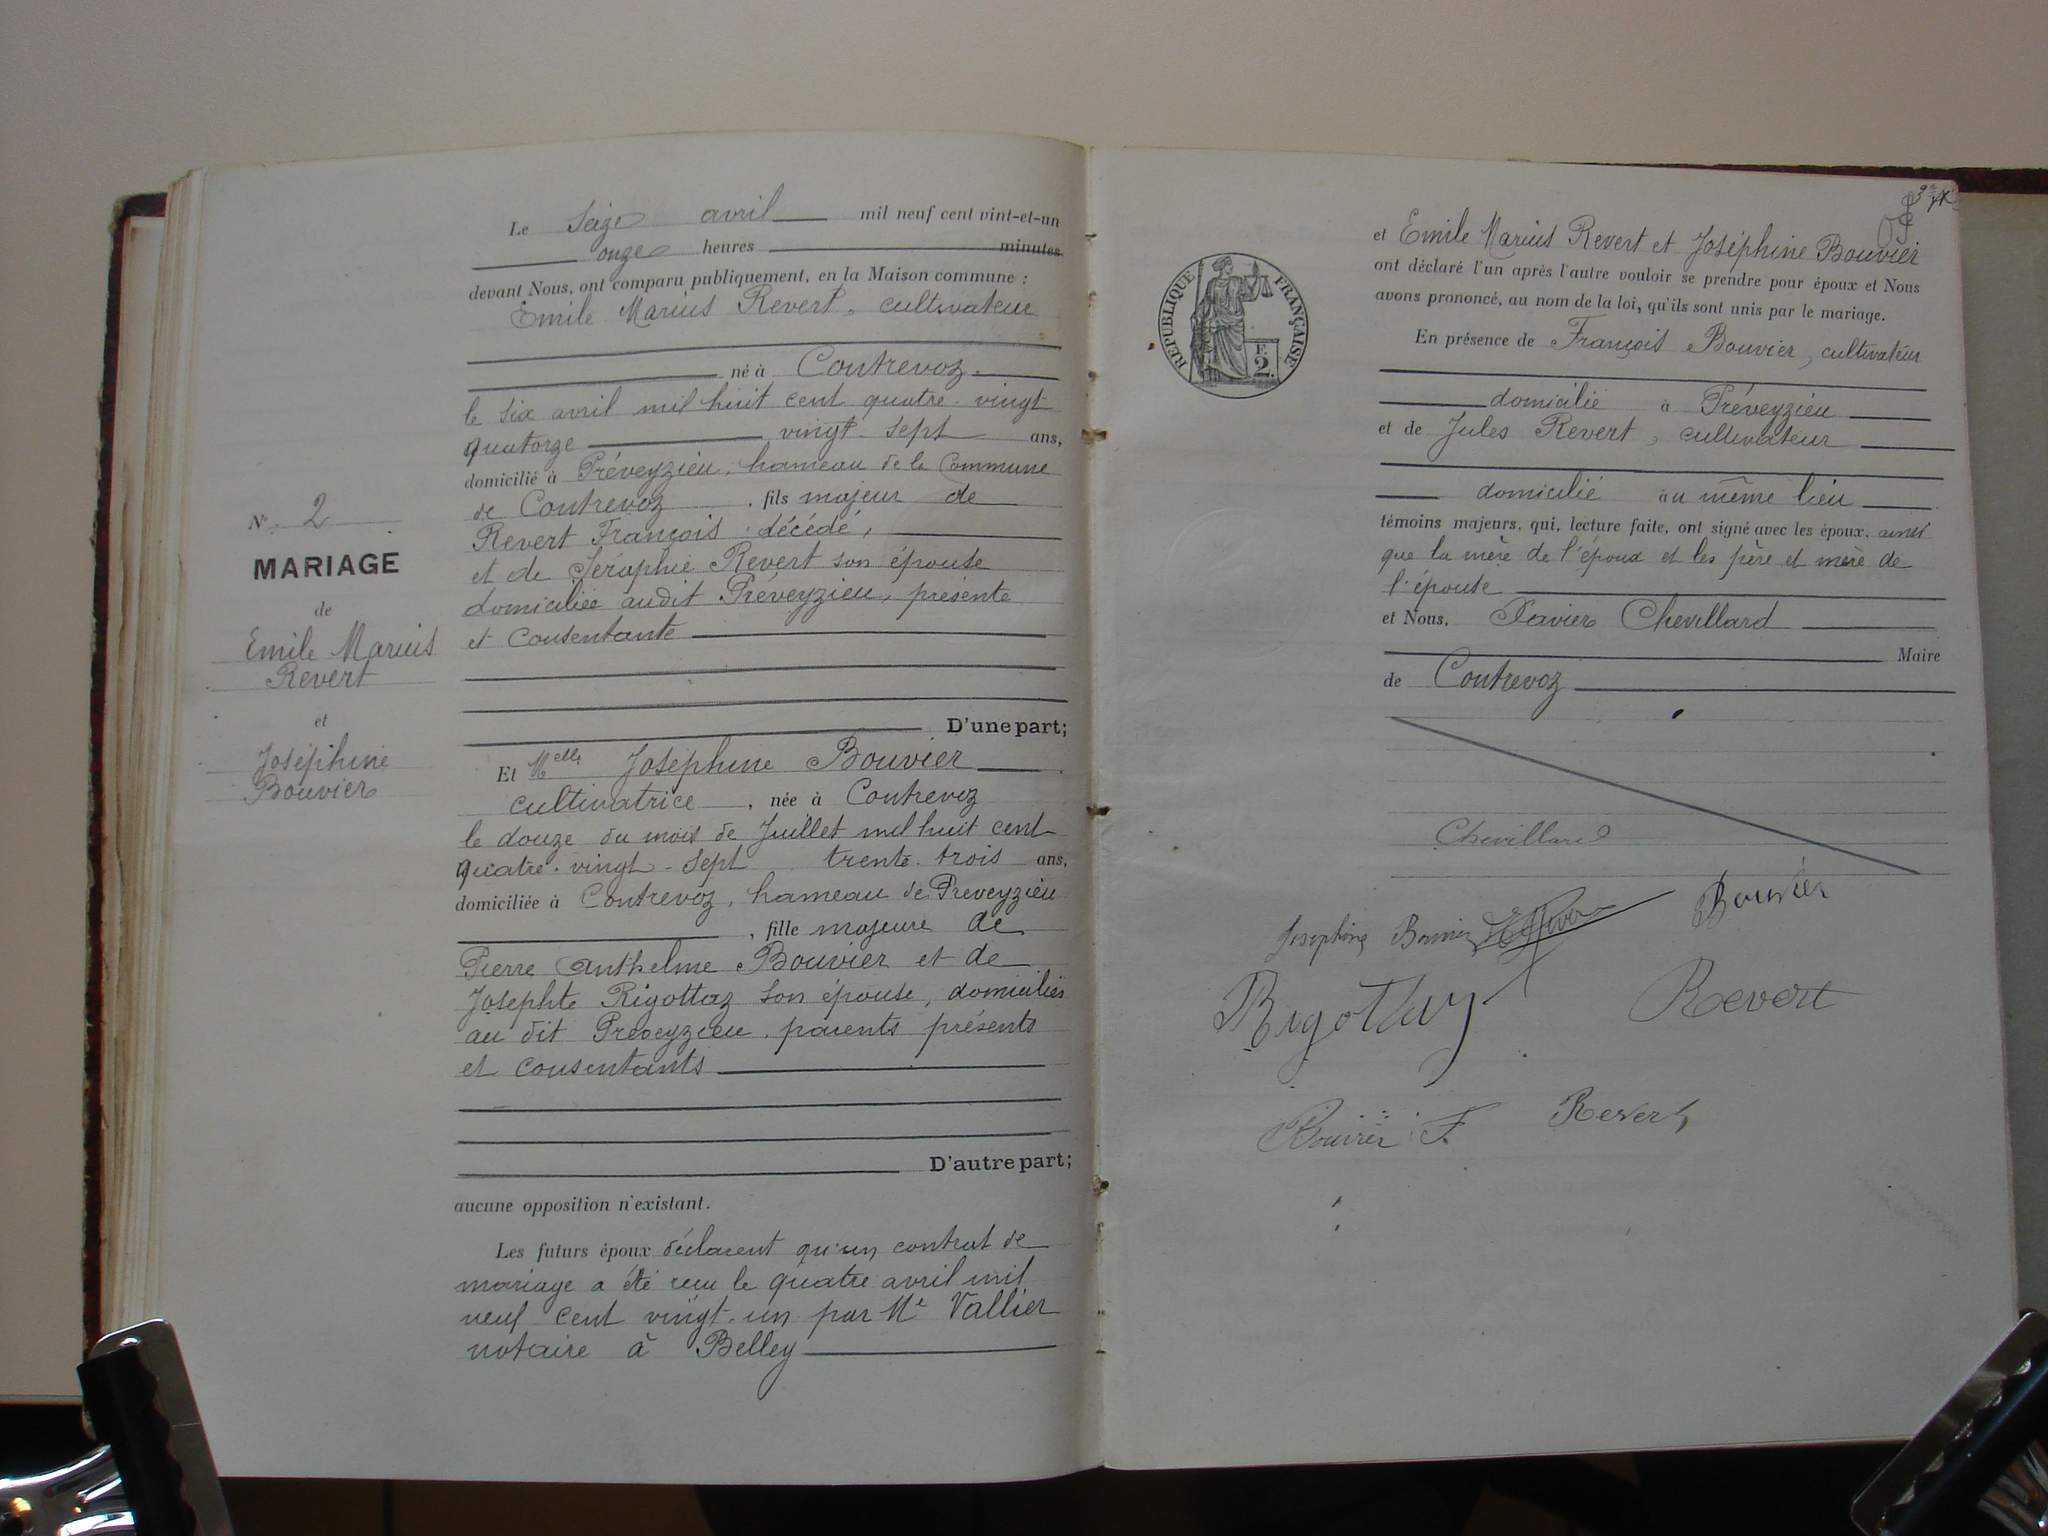 Le Seize avril mil neuf cent vint-et-un
onze heures minutes
devant Nous, ont comparu publiquement, en la Maison commune :
Emile Marius Revert, cultivateur
né à Contrevoz.
le six avril mil huit cent quatre-vingt
quatorze vingt-sept ans,
domicilié à Préveyzieu, hameau de la Commune
de Contrevoz, fils majeur de
Revert François, décédé,
et de Séraphie Revert son épouse
domiciliée audit Préveyzieu, présente
et consentante
D'une part;
N° 2
MARIAGE
de
Emile Marius
Revert
et
Joséphine
Bouvier
Et Melle Joséphine Bouvier
cultivatrice, née à Contrevoz
le douze du mois de Juillet mil huit cent
quatre-vingt-sept trente-trois ans,
domiciliée à Contrevoz, hameau de Préveyzieu
, fille majeure de
Pierre Anthelme Bouvier et de
Josephte Rigottaz son épouse, domiciliés
au dit Préveyzieu, parents présents
et consentants
D'autre part;
aucune opposition n'existant.
Les futurs époux déclarent qu'un contrat de
mariage a été reçu le quatre avril mil
neuf cent vingt-un par Me Vallier
notaire à Belley
RÉPUBLIQUE FRANÇAISE
F.
2.
et Emile Marius Revert et Joséphine Bouvier
ont déclaré l'un après l'autre vouloir se prendre pour époux et Nous
avons prononcé, au nom de la loi, qu'ils sont unis par le mariage.
En présence de François Bouvier, cultivateur
domicilié à Préveyzieu
et de Jules Revert, cultivateur
domicilié au même lieu
témoins majeurs, qui, lecture faite, ont signé avec les époux, ainsi
que la mère de l'époux et les père et mère de
l'épouse
et Nous, Xavier Chevillard
Maire
de Contrevoz
Chevillard
Josephine Bouvier Bouvier
Rigottaz Revert
Bouvier F. Revert